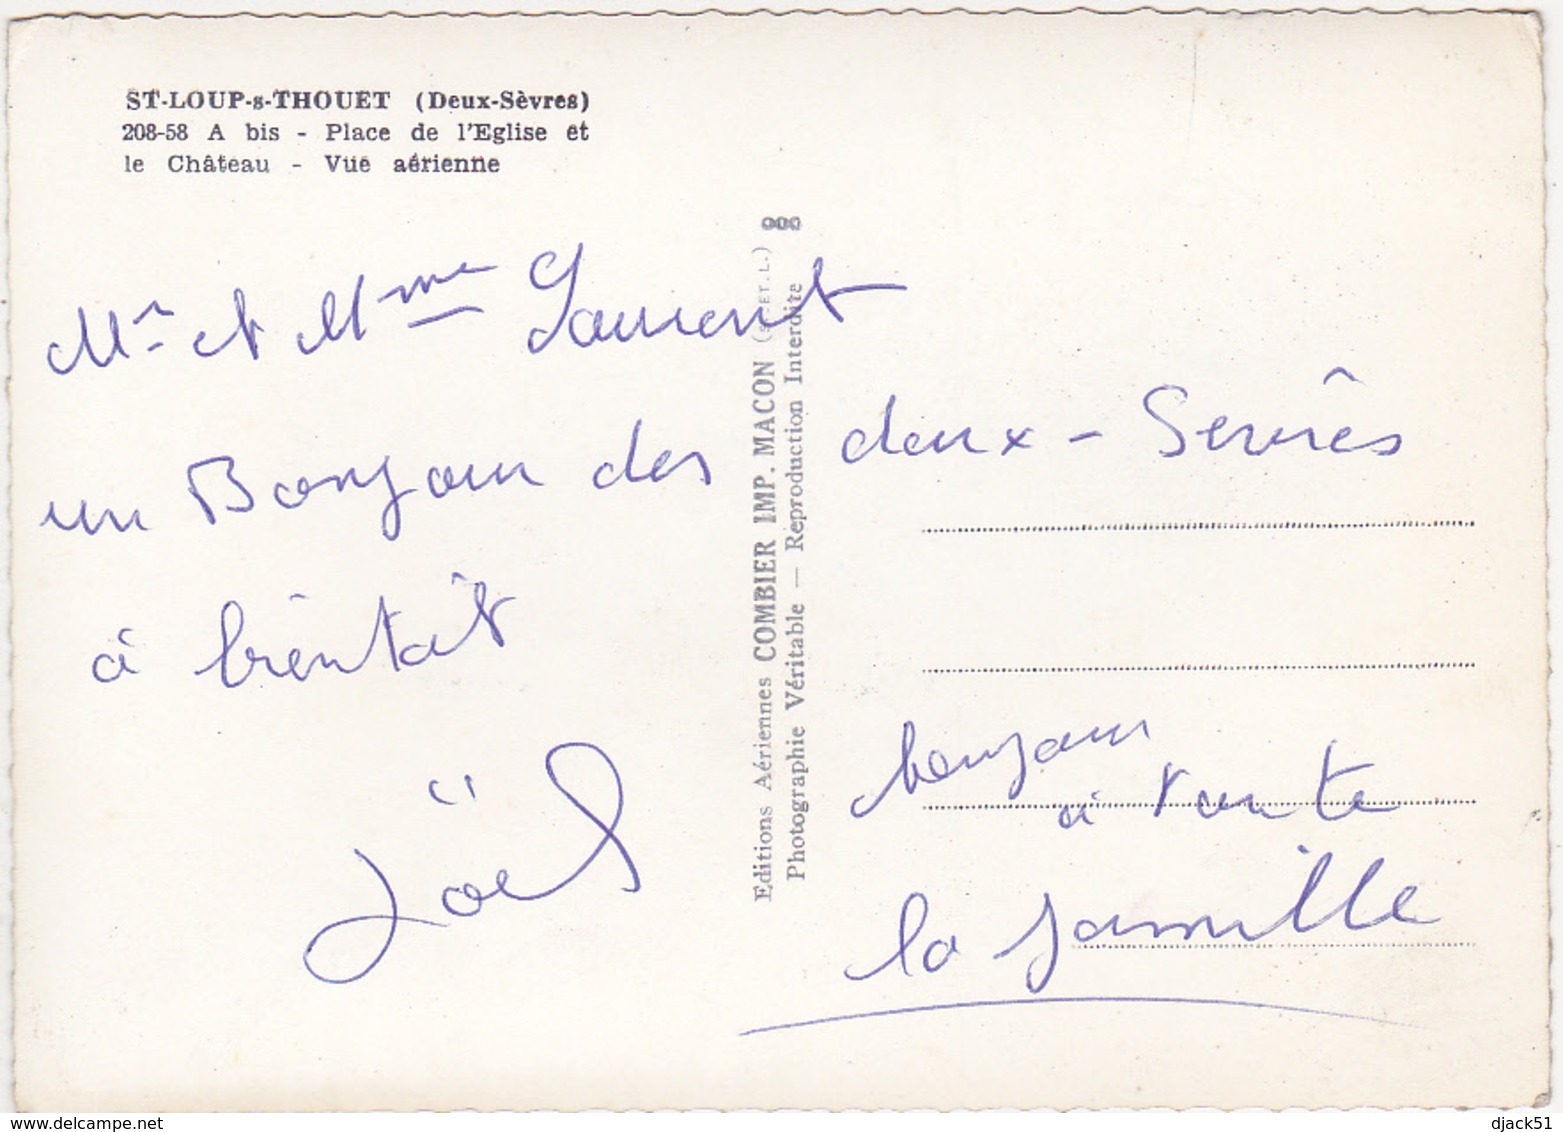 ST-LOUP-s-THOUET (Deux-Sèvres)
208-58 A bis - Place de l'Eglise et
le Château - Vue aérienne
Mr et Mme Laurent
un Bonjour des deux-Sevrès
à bientôt
Joël
Editions Aériennes COMBIER IMP. MACON (S. ET. L.)
Photographie Véritable — Reproduction Interdite
bonjour
à toute
la famille
delcampe.net
djack51